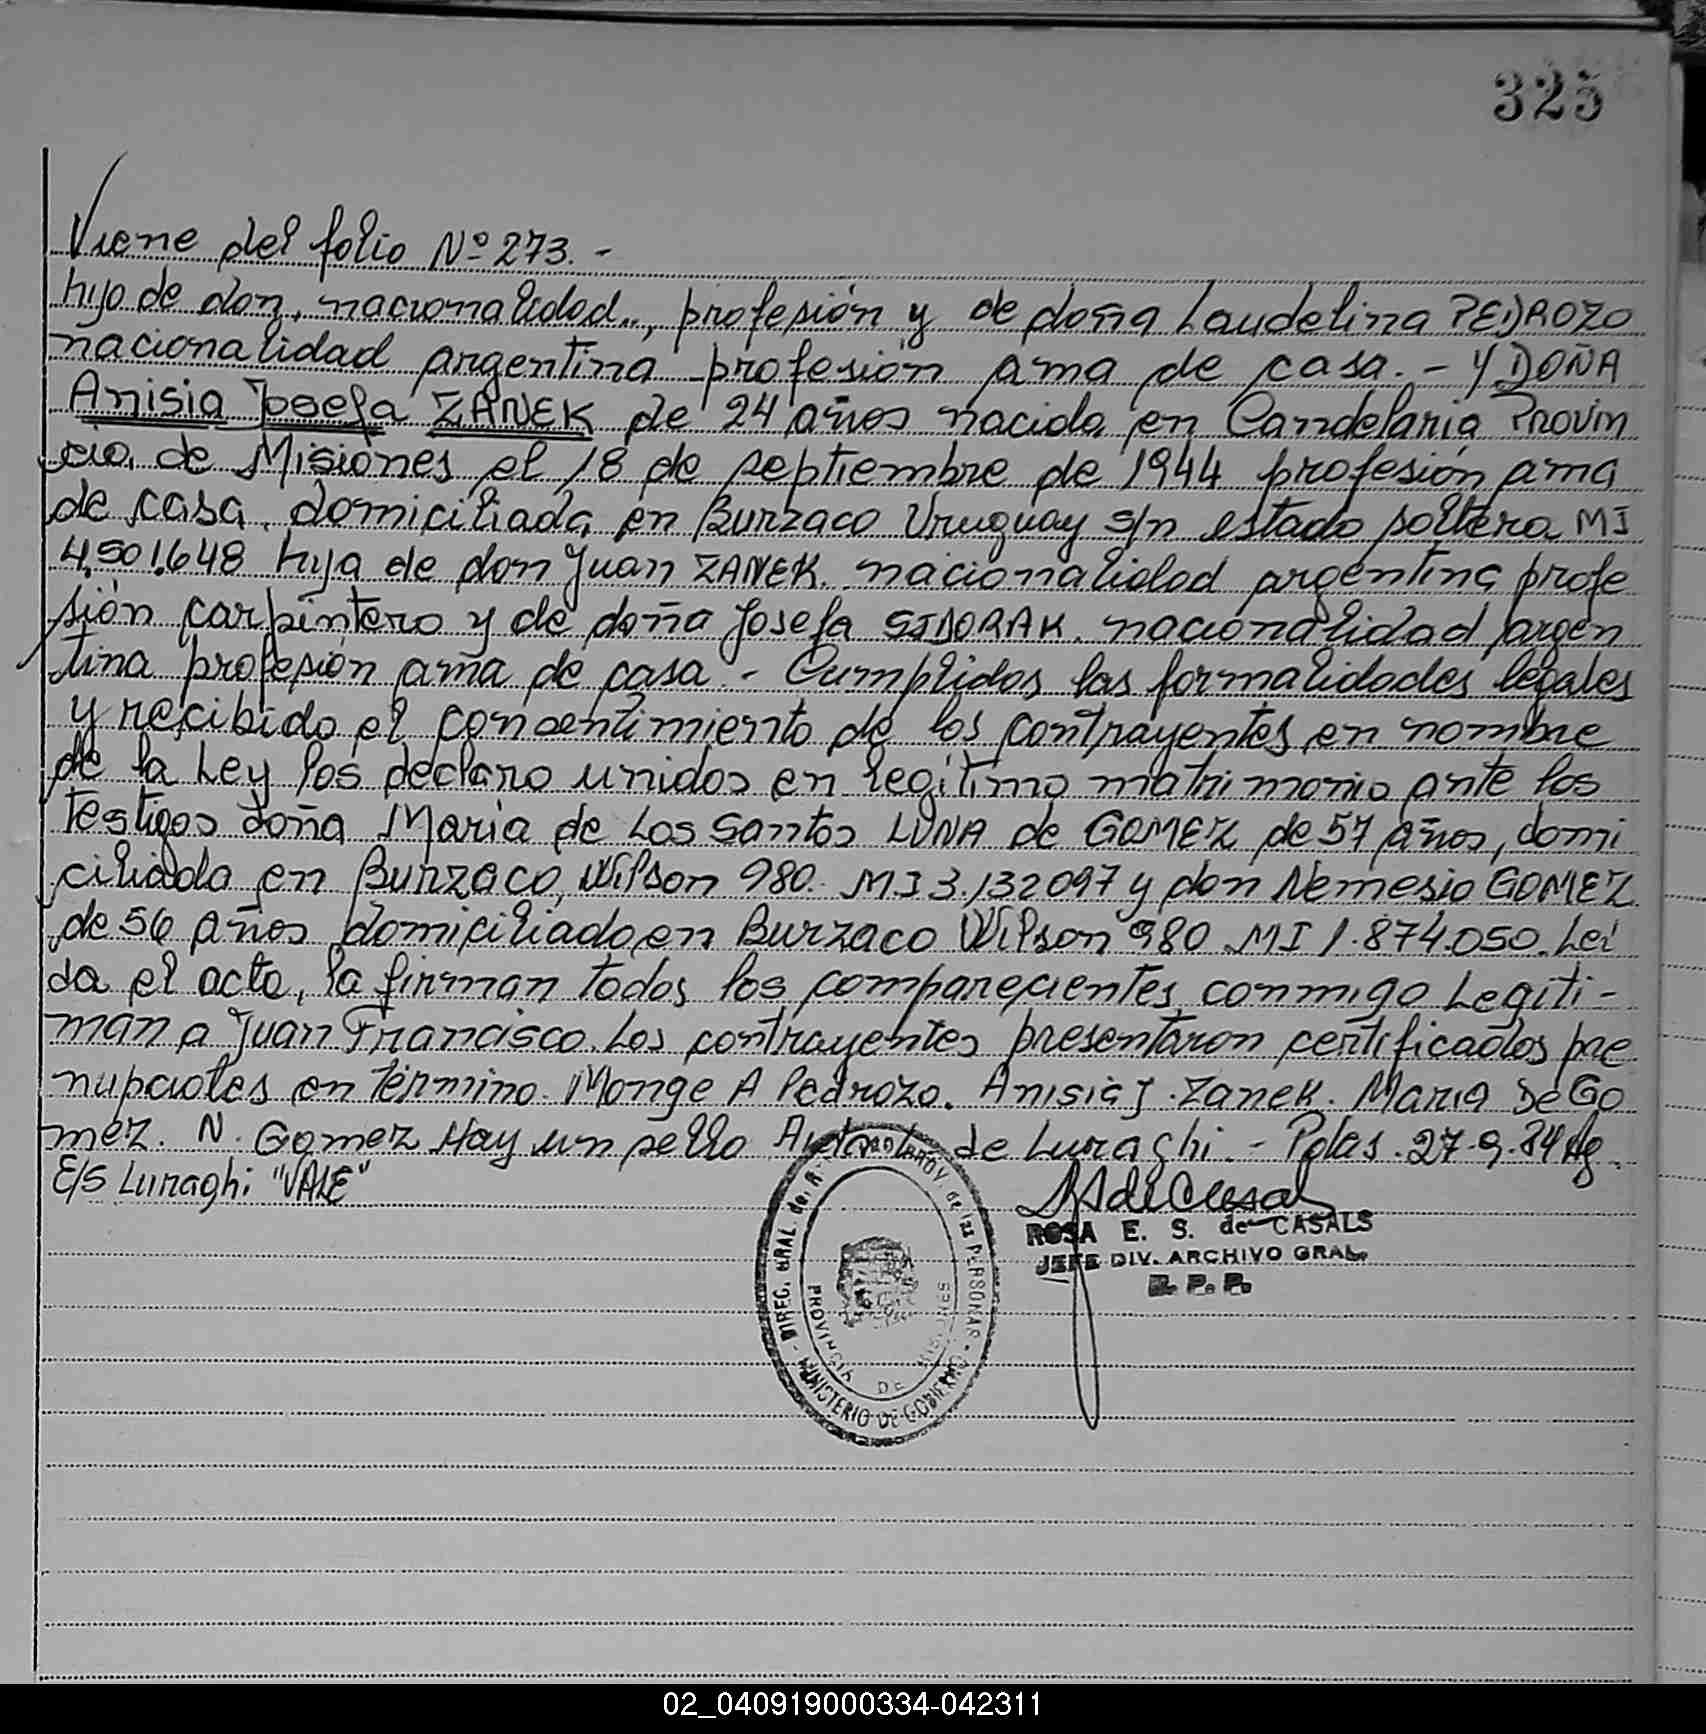 325
Viene del folio Nº 273.-
hijo de don, nacionalidad.., profesión y de doña Laudelina PEDROZO
nacionalidad argentina profesión ama de casa.- Y DOÑA
Anisia Josefa ZANEK de 24 años nacida en Candelaria Provin
cia de Misiones el 18 de septiembre de 1944 profesión ama
de casa, domiciliada en Burzaco Uruguay s/n estado soltera MI
4.501.648 hija de don Juan ZANEK. nacionalidad argentina profe
sión carpintero y de doña Josefa SIDORAK. nacionalidad argen
tina profesión ama de casa.- Cumplidos las formalidades legales
y recibido el consentimiento de los contrayentes en nombre
de la Ley los declaro unidos en legítimo matrimonio ante los
testigos doña María de Los Santos LUNA de GOMEZ de 57 años, domi
ciliada en Burzaco, Wilson 980. M.I 3.132097 y don Nemesio GOMEZ
de 56 años domiciliado en Burzaco Wilson 980 MI 1.874.050. Lei
da el acta, la firman todos los comparecientes conmigo Legiti-
man a Juan Francisco. Los contrayentes presentaron certificados pre
nupciales en término. Monge A Pedrozo. Anisia J. Zanek. Maria De Go
mez. N. Gomez Hay un sello de Luraghi.- Pdas. 27.9.84
E/S Luraghi "VALE"
ROSA E. S. de CASALS
JEFE DIV. ARCHIVO GRAL.
R. P. P.
DIREC. GRAL. del R. PROV. de las PERSONAS - MINISTERIO DE GOBIERNO -
PROVINCIA DE MISIONES
02_040919000334-042311